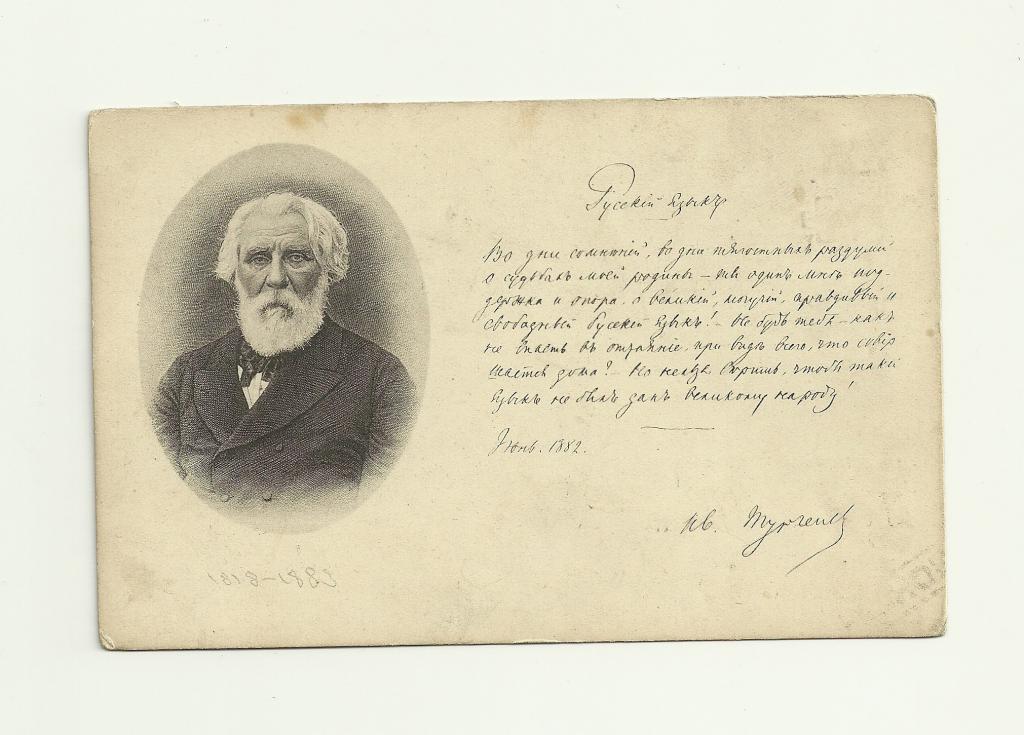 Русскій Языкъ
Во дни сомнѣній, во дни тягостныхъ раздумій
о судьбахъ моей родины — ты одинъ мнѣ под-
держка и опора, о великій, могучій, правдивый и
свободный Русскій Языкъ! — Не будь тебя — какъ
не впасть въ отчаяніе, при видѣ всего, что совер
шается дома? — Но нельзя вѣрить, чтобы такой
языкъ не былъ данъ великому народу!
Іюнь. 1882.
Ив. Тургенев
1818-1883